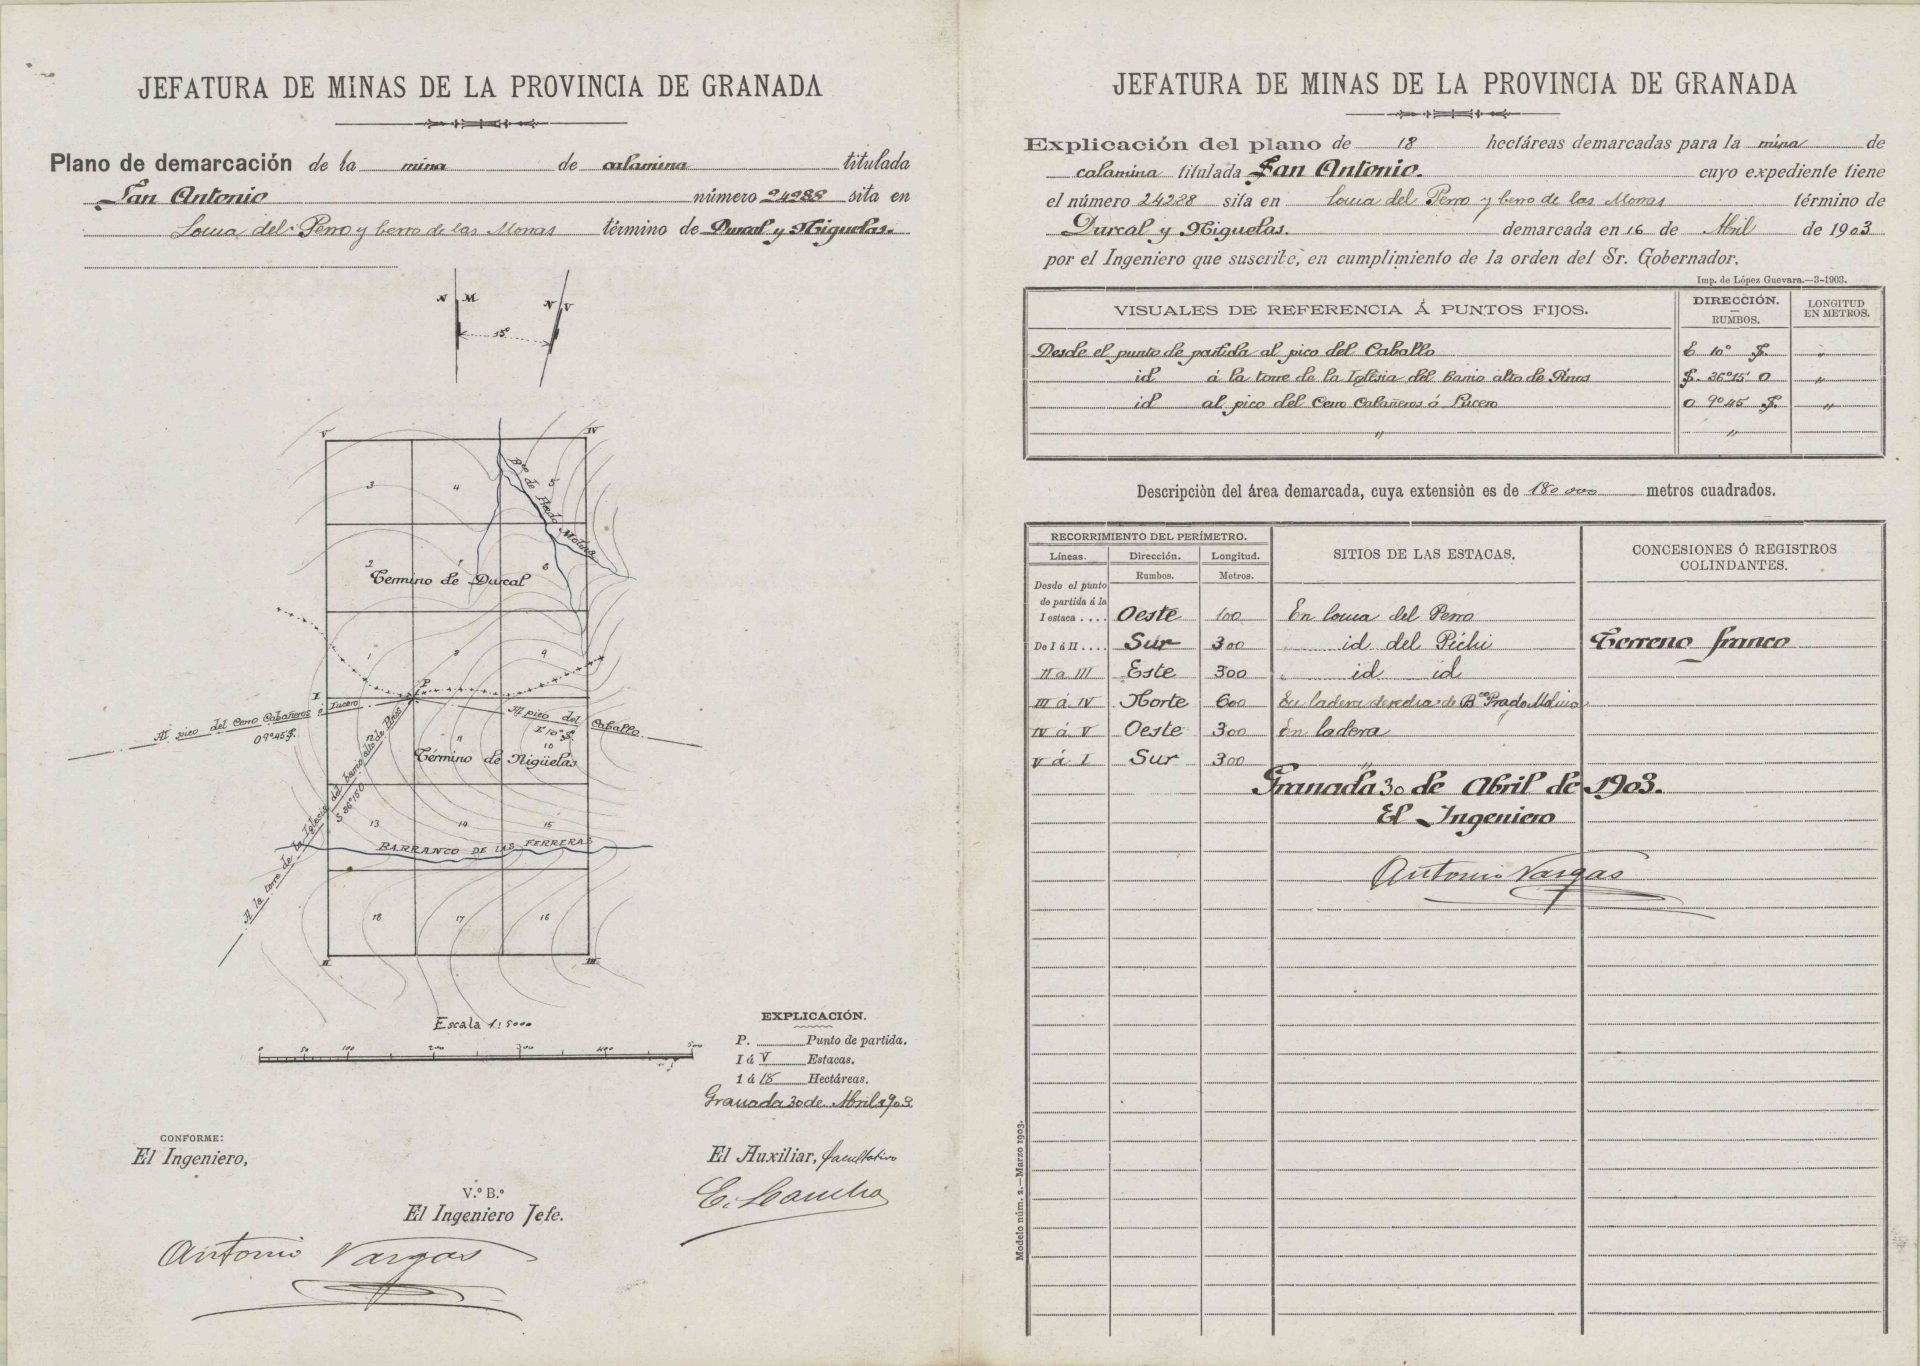 JEFATURA DE MINAS DE LA PROVINCIA DE GRANADA
Plano de demarcación de la mina de calamina titulada
San Antonio número 24288 sita en
Loma del Perro y berro de las Monas término de Durcal y Nigüelas.
N M
N V
15º
V IV
3 4 5
Bco de Prado Molino
2 7 6
Término de Durcal
1 8 9
I P
Al pico del Cerro Cabañeros ó Lucero
O 9º45' S.
Al pico del Caballo
E 10º S.
12 11 10
Término de Nigüelas
A la torre de la Iglesia del barrio alto de Pinos
S 36º15' O
13 14 15
BARRANCO DE LAS FERRERAS
18 17 16
II III
Escala 1:5000
0 50 100 200 300 400 500
EXPLICACIÓN.
P. Punto de partida.
I á V Estacas.
1 á 18 Hectáreas.
Granada 30 de Abril 1903
CONFORME:
El Ingeniero,
El Auxiliar, facultativo
V.º B.º
El Ingeniero Jefe.
Antonio Vargas
JEFATURA DE MINAS DE LA PROVINCIA DE GRANADA
Explicación del plano de 18 hectáreas demarcadas para la mina de
calamina titulada San Antonio. cuyo expediente tiene
el número 24288 sita en Loma del Perro y berro de las Monas término de
Durcal y Nigüelas. demarcada en 16 de Abril de 1903
por el Ingeniero que suscribe, en cumplimiento de la orden del Sr. Gobernador.
Imp. de López Guevara.—3-1903.
VISUALES DE REFERENCIA Á PUNTOS FIJOS. DIRECCIÓN. — RUMBOS. LONGITUD EN METROS.
Desde el punto de partida al pico del Caballo E 10º S. "
id á la torre de la Iglesia del barrio alto de Pinos S. 36º15' O "
id al pico del Cerro Cabañeros ó Lucero O 9º45' S. "
" "
Descripción del área demarcada, cuya extensión es de 180 000 metros cuadrados.
RECORRIMIENTO DEL PERÍMETRO. SITIOS DE LAS ESTACAS. CONCESIONES Ó REGISTROS COLINDANTES.
Líneas. Dirección. Longitud.
Rumbos. Metros.
Desde el punto
de partida á la
I estaca .... Oeste 100 En loma del Perro
De I á II .... Sur 300 id del Pichi Terreno franco
II a III Este 300 id id
III á IV Norte 600 En ladera derecha de Bco Prado Molino
IV á V Oeste 300 En ladera
V á I Sur 300 "
Granada 30 de Abril de 1903.
El Ingeniero
Antonio Vargas
Modelo núm. 2.—Marzo 1903.